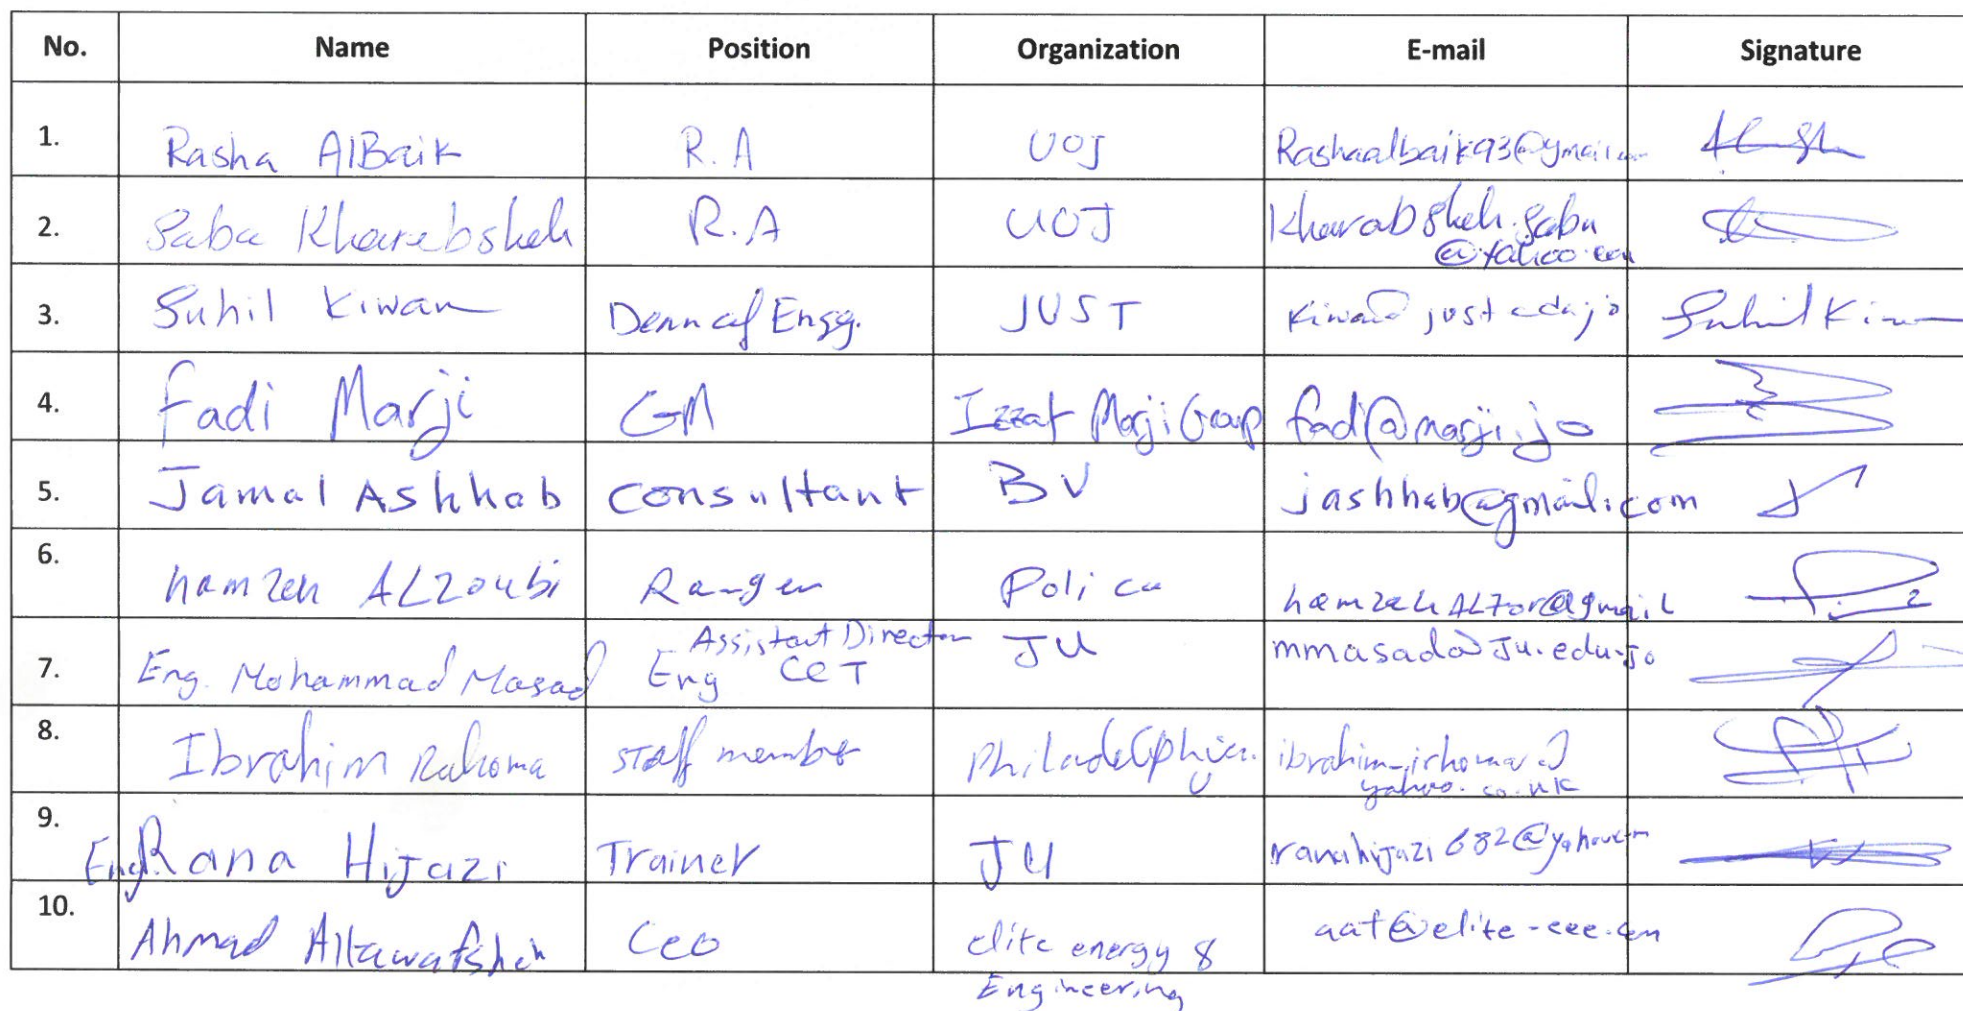 No. Name Position Organization E-mail Signature
1. Rasha AlBaik R.A UOJ Rashaalbaik93@gmail
2. Saba Kharabsheh R.A UOJ Kharabsheh.saba
@yahoo.com
3. Suhil Kiwan Dean of Engg. JUST Suhil Kiwan
4. Fadi Marji GM Izzat Marji Group fadi@marji.jo
5. Jamal Ashhab Consultant BV jashhab@gmail.com
6. hamzeh ALZoubi Ranger Police
Assistant Director
7. Eng. Mohammad Masad Eng CET JU mmasad@Ju.edu.Jo
8. Ibrahim Rahoma staff member Philadelphia
yahoo.co.uk
9. Eng. Rana Hijazi Trainer JU ranahijazi682@yahoo.com
10. Ahmad Altawafsheh Ceo elite energy & aat@elite-eee.com
Engineering